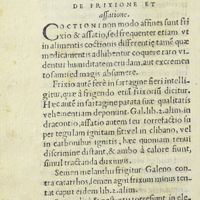 DE FRIXIONE ET
assatione.
COCTIONI non modo affines sunt fri
xio & assatio, sed frequenter etiam ut
in alimentis coctionis differentię: tamẽ quæ
medicamentis adhibentur coquere raro vi-
dentur humiditatem crudam, aut excremẽ
to sam: sed magis absumere.
Frixio autẽ fere in sartagine fieri intelli-
gitur, quæ à frigendo etiã frixoriũ dicitur.
Hæc autẽ in sartagine parata suæ qualitatis
vehementẽ deponunt, Gal. lib. 2. alim. in
dracontio, assatio autẽ seu torrefactio su
per tegulam ignitam fit vel in clibano, vel
in carbonibus ignitis, hæc quoniam tenui
discrimine distant, & ambo à calore sunt,
simul tractanda duximus.
Semen melanthii frigitur Galeno con-
tra catarrhos, semen agni frixum minus ten
tat caput eidem lib. 2. alim.